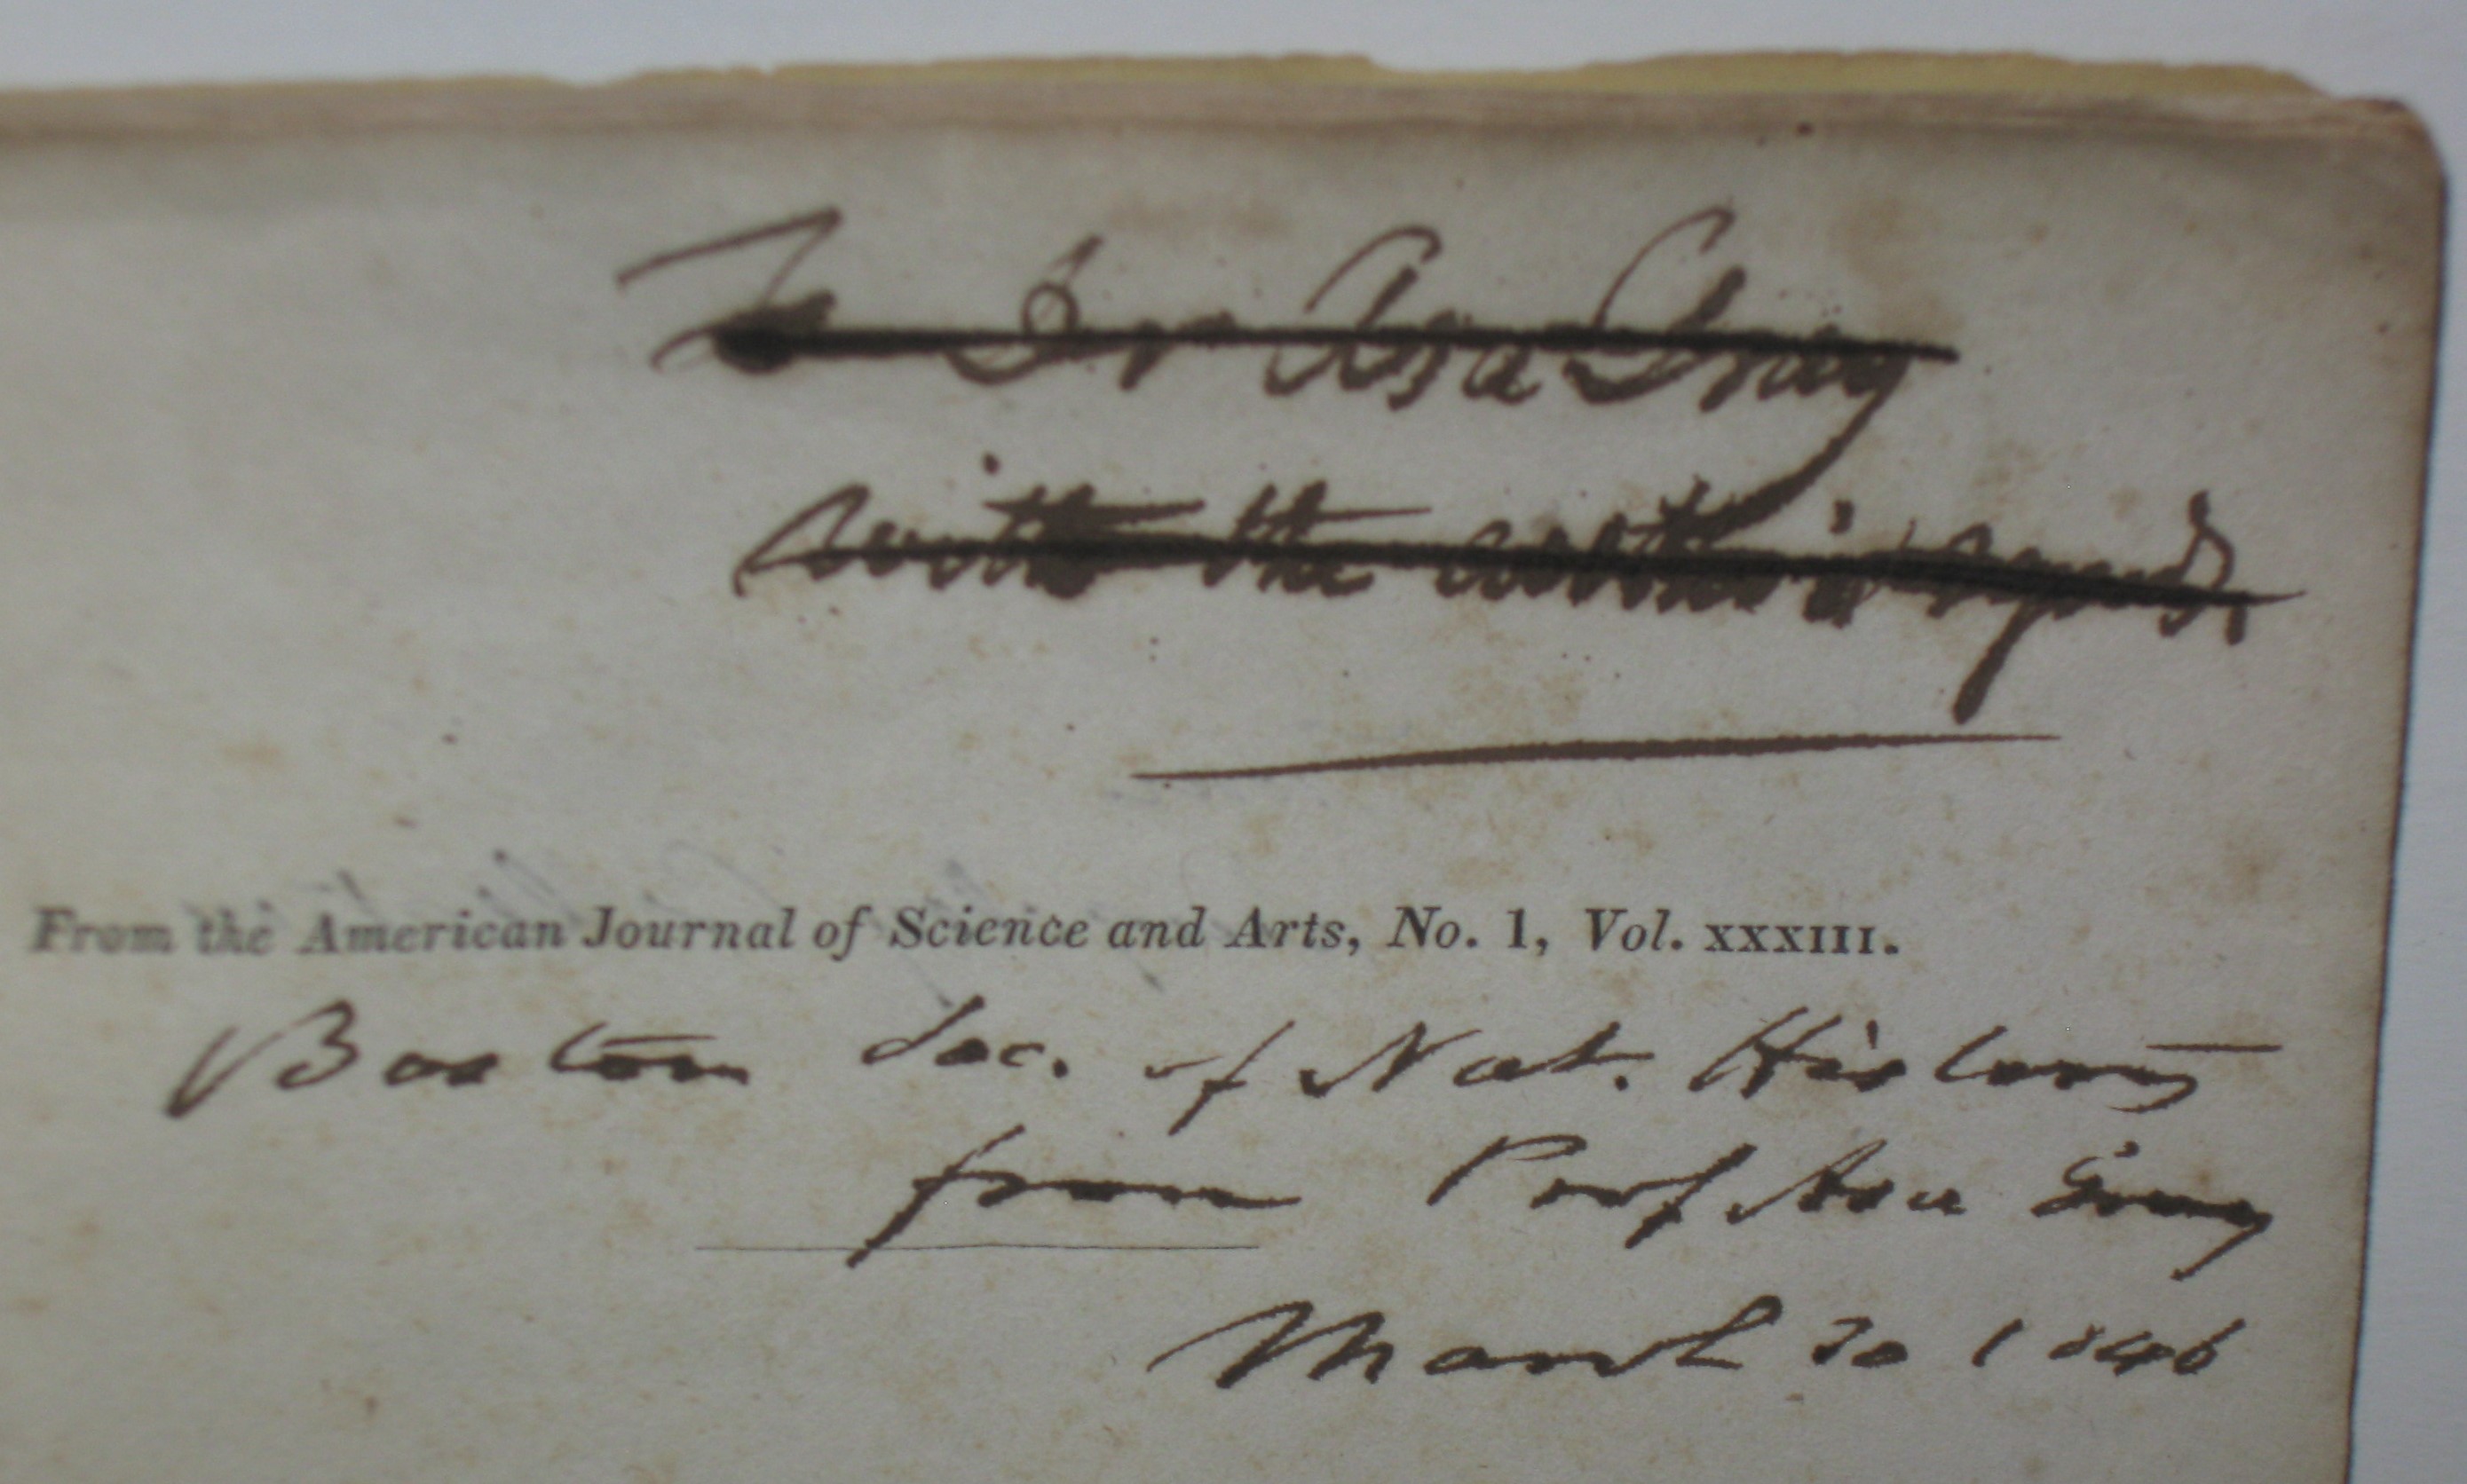 To Dr Asa Gray
with the author's
From the American Journal of Science and Arts, No. 1, Vol. XXXIII.
Boston Soc. of Nat. History
from Prof Asa Gray
March 1846